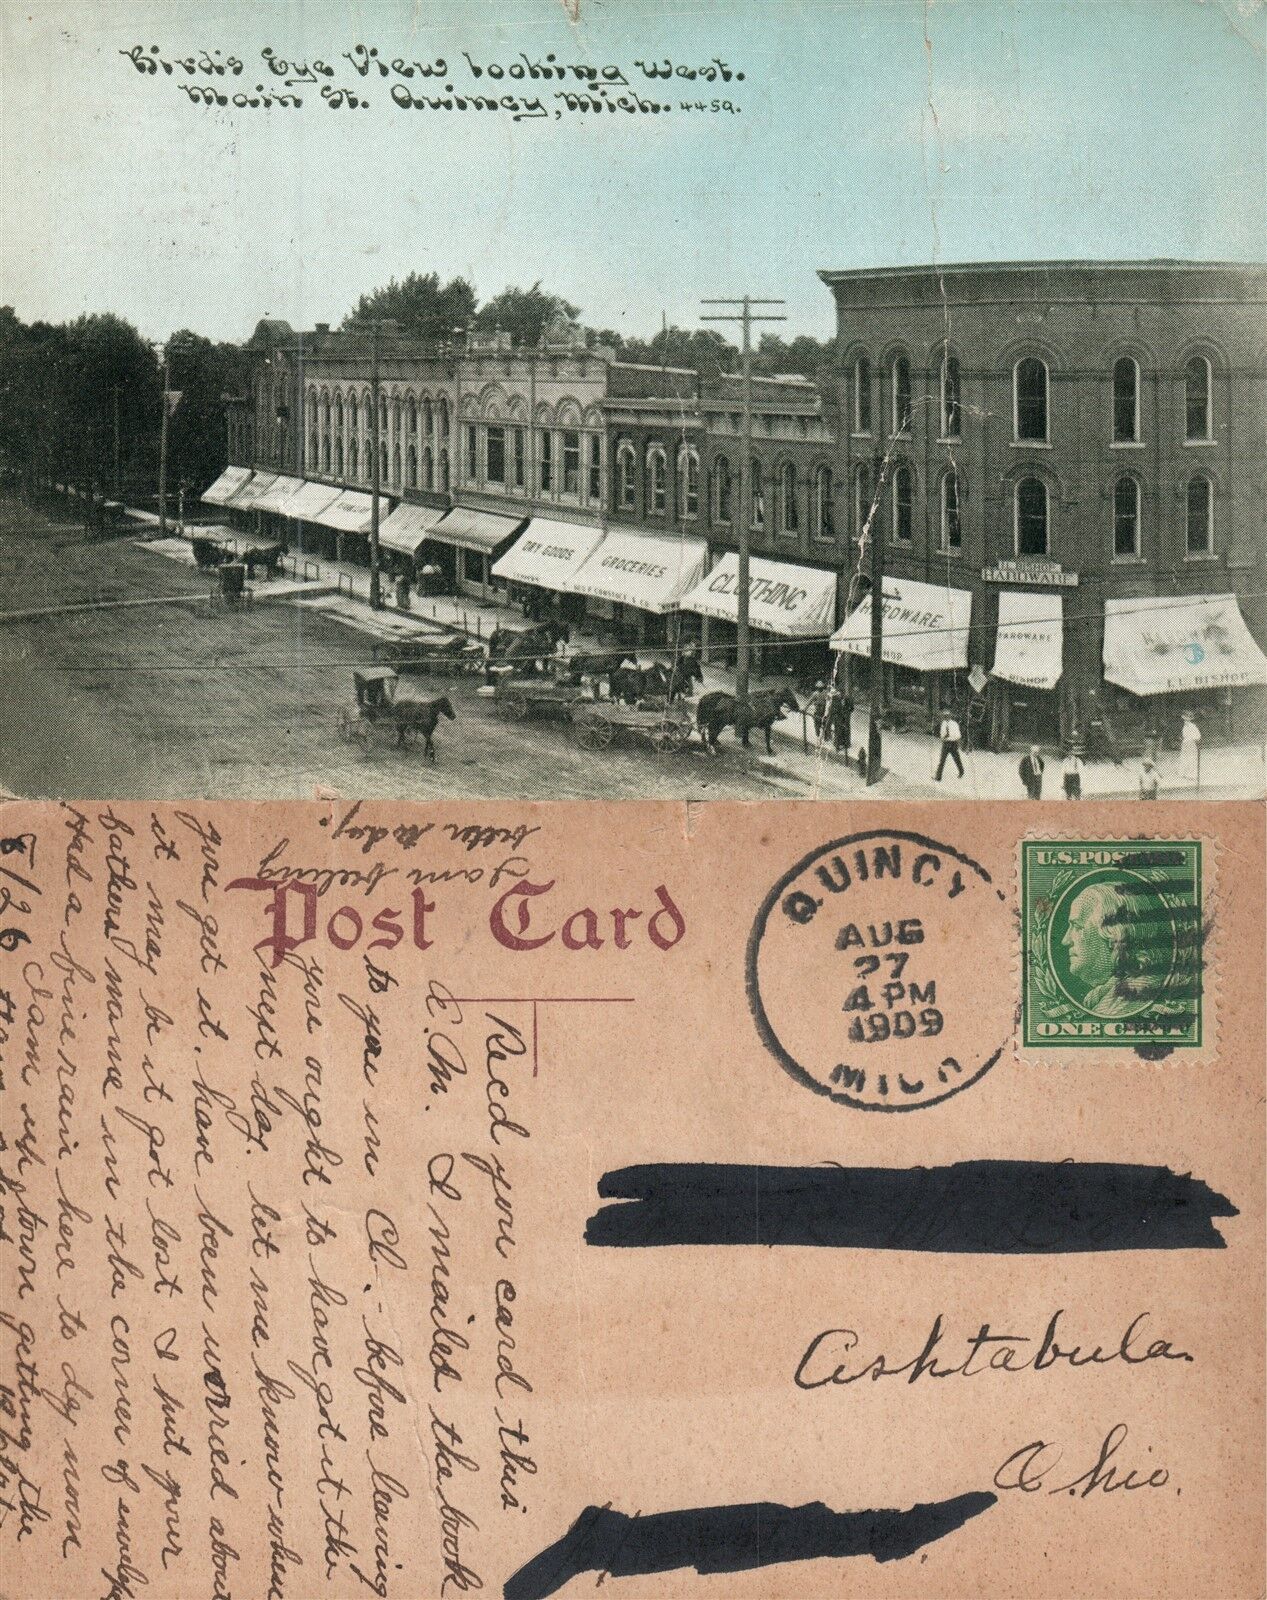 Bird's Eye View looking west.
Main St. Quincy, Mich. 4459.
DRY GOODS
GROCERIES
CLOTHING
HARDWARE
E.L. BISHOP
BISHOP
HARDWARE
HARDWARE
BISHOP
E.L. BISHOP
Post Card
QUINCY
AUG
27
4 PM
1909
MICH
U.S. POSTAGE
ONE CENT
Ashtabula
Ohio.
Recd you card this
A.M. I mailed the book
to you in Cl. - before leaving
you ought to have got it the
next day. let me know when
you get it. have been worried about
it may be it got lost I put your
fathers name in the corner of
Had a fine rain here to day noon
I am up town getting the
8/26
I am feeling
better today.